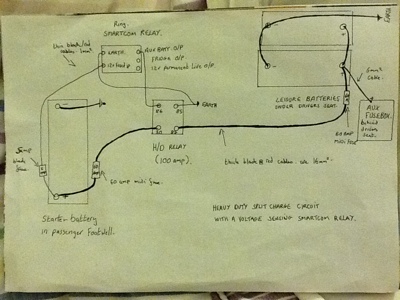 Ring
SMARTCOM RELAY.
Thin black/red
cables 1mm²
EARTH
12v Feed
AUX BATT. O/P
FRIDGE O/P
12v Permanent Live O/P
EARTH
EARTH
6mm²
cable.
LEISURE BATTERIES
UNDER DRIVERS SEAT.
AUX
FUSEBOX
behind
drivers
seat.
60 AMP
midi fuse
86
85
H/D RELAY
(100 amp).
thick black & red cables are 16mm².
5amp
blade
fuse
60 amp midi fuse.
Starter battery
in passenger Footwell.
HEAVY DUTY SPLIT CHARGE CIRCUIT
WITH A VOLTAGE SENSING SMARTCOM RELAY.